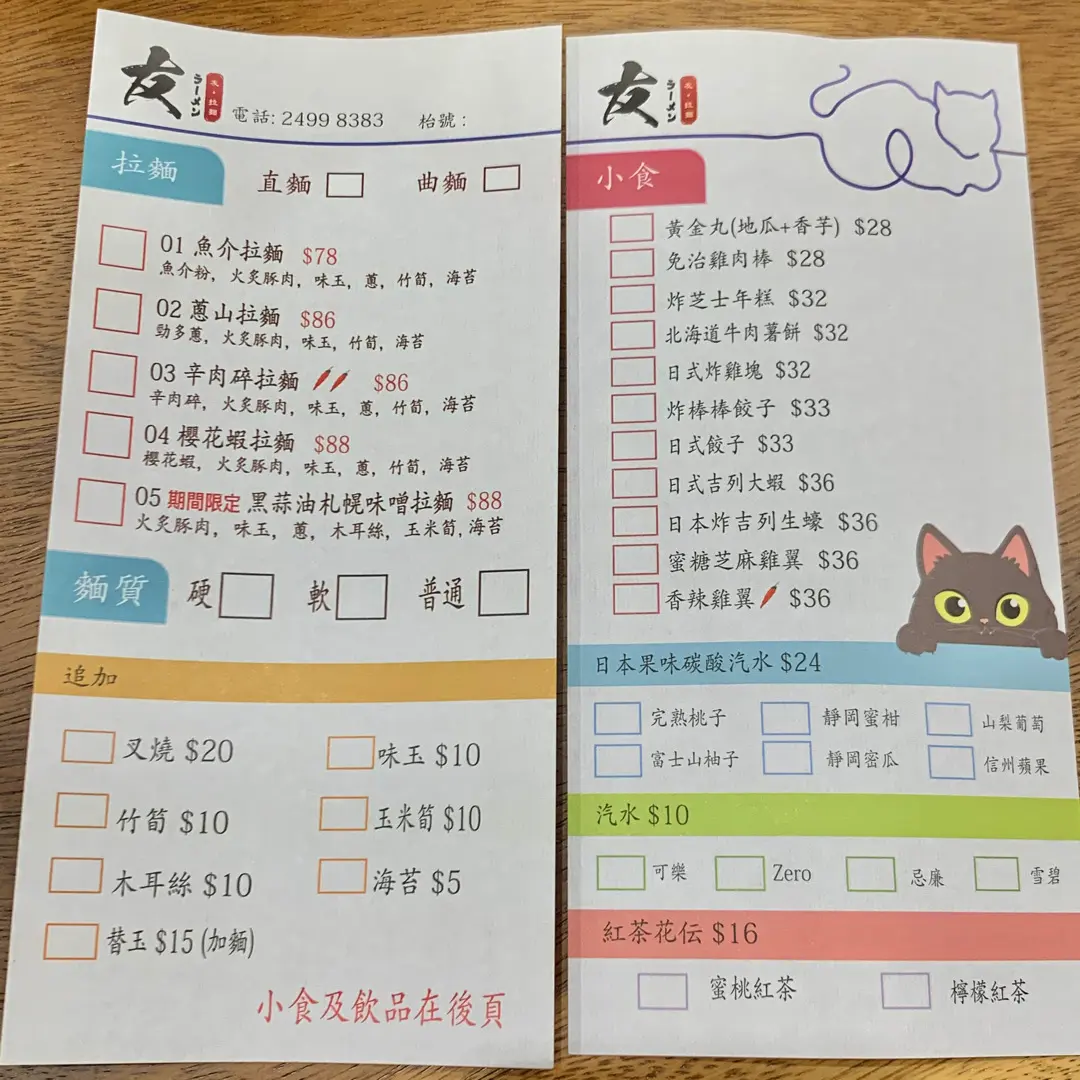 友
ラーメン
友・拉麵
電話: 2499 8383 枱號 :
拉麵
直麵 曲麵
01 魚介拉麵 $78
魚介粉, 火炙豚肉, 味玉, 蔥, 竹筍, 海苔
02 蔥山拉麵 $86
勁多蔥, 火炙豚肉, 味玉, 竹筍, 海苔
03 辛肉碎拉麵 $86
辛肉碎, 火炙豚肉, 味玉, 蔥, 竹筍, 海苔
04 櫻花蝦拉麵 $88
櫻花蝦, 火炙豚肉, 味玉, 蔥, 竹筍, 海苔
05 期間限定 黑蒜油札幌味噌拉麵 $88
火炙豚肉, 味玉, 蔥, 木耳絲, 玉米筍, 海苔
麵質 硬 軟 普通
追加
叉燒 $20 味玉 $10
竹筍 $10 玉米筍 $10
木耳絲 $10 海苔 $5
替玉 $15 (加麵)
小食及飲品在後頁
友
ラーメン
友・拉麵
小食
黃金丸(地瓜+香芋) $28
免治雞肉棒 $28
炸芝士年糕 $32
北海道牛肉薯餅 $32
日式炸雞塊 $32
炸棒棒餃子 $33
日式餃子 $33
日式吉列大蝦 $36
日本炸吉列生蠔 $36
蜜糖芝麻雞翼 $36
香辣雞翼 $36
日本果味碳酸汽水 $24
完熟桃子 靜岡蜜柑 山梨葡萄
富士山柚子 靜岡密瓜 信州蘋果
汽水 $10
可樂 Zero 忌廉 雪碧
紅茶花伝 $16
蜜桃紅茶 檸檬紅茶